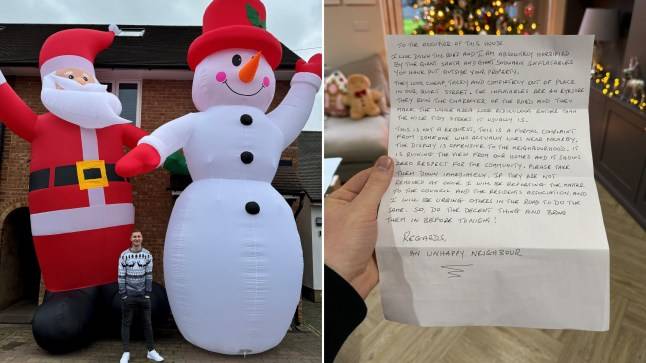 TO THE OCCUPIER OF THIS HOUSE
I LIVE DOWN THE ROAD AND I AM ABSOLUTELY HORRIFIED
BY THE GIANT SANTA AND GIANT SNOWMAN INFLATABLES
YOU HAVE PUT OUTSIDE YOUR PROPERTY.
THEY LOOK CHEAP, TACKY AND COMPLETELY OUT OF PLACE
IN OUR STREET. THE INFLATABLES ARE AN EYESORE
THEY RUIN THE CHARACTER OF THE ROAD AND THEY
MAKE THE WHOLE AREA LOOK RIDICULOUS RATHER THAN
THE NICE TIDY STREET IT USUALLY IS.
THIS IS NOT A REQUEST, THIS IS A FORMAL COMPLAINT
FROM SOMEONE WHO ACTUALLY LIVES NEAR
THE DISPLAY IS OFFENSIVE TO THE NEIGHBOURHOOD, IT
IS RUINING THE VIEW FROM OUR HOMES AND IT SHOWS
ZERO RESPECT FOR THE COMMUNITY. PLEASE TAKE
THEM DOWN IMMEDIATELY. IF THEY ARE NOT
REMOVED AT ONCE I WILL BE REPORTING THE MATTER
TO THE COUNCIL AND THE RESIDENTS ASSOCIATION AND
I WILL BE URGING OTHERS IN THE ROAD TO DO THE
SAME. SO, DO THE DECENT THING AND BRING
THEM IN BEFORE TONIGHT!
REGARDS
AN UNHAPPY NEIGHBOUR